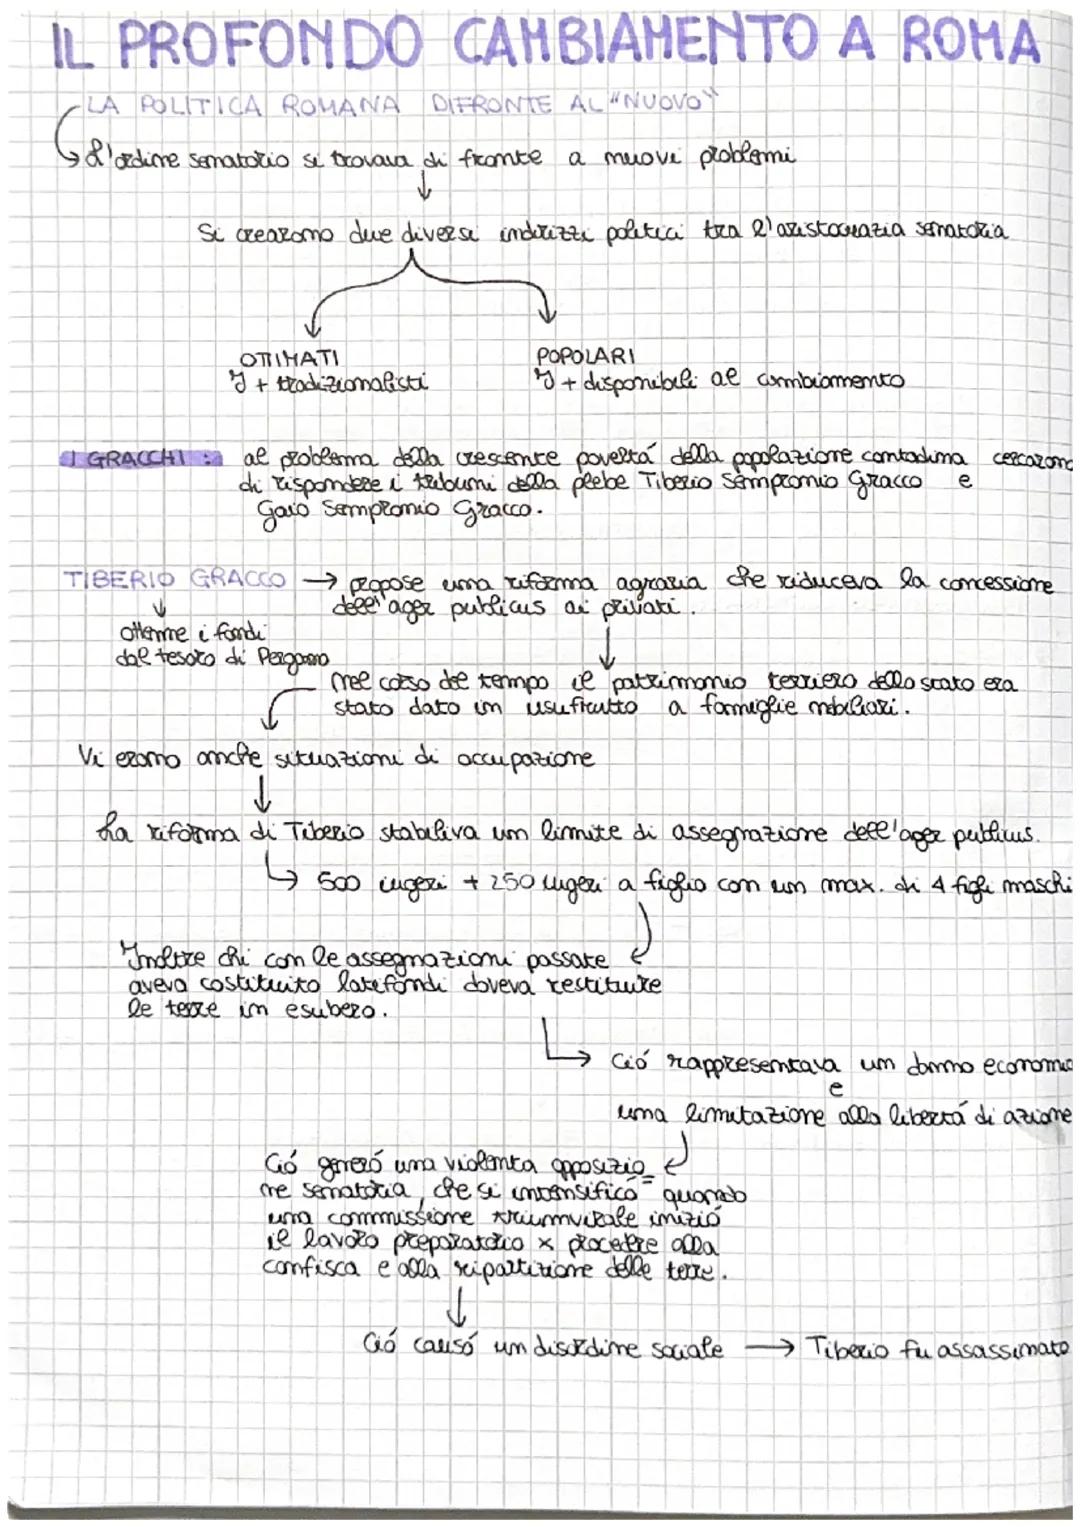 IL PROFONDO CAMBIAMENTO A ROMA
LA POLITICA ROMANA DIFRONTE AL "NUOVO"
L'ordine senatorio si trovava di fronte a nuovi problemi
Si crearono due diversi indirizzi politici tra l'aristocrazia senatoria
OTTIMATI
I + tradizionalisti
POPOLARI
I + disponibili al cambiamento
I GRACCHI : al problema della crescente povertá della popolazione contadina cercarono
di rispondere i tribuni della plebe Tiberio Sempronio Gracco e
Gaio Sempronio Gracco.
TIBERIO GRACCO → propose una riforma agraria che riduceva la concessione
dell'ager publicus ai privati.
ottenne i fondi
dal tesoro di Pergamo
nel corso del tempo il patrimonio terriero dello stato era
stato dato in usufrutto a famiglie nobiliari.
Vi erano anche situazioni di occupazione
La riforma di Tiberio stabiliva un limite di assegnazione dell'ager publicus.
500 iugeri + 250 iugeri a figlio con un max. di 4 figli maschi
Inoltre chi con le assegnazioni passate
aveva costituito latifondi doveva restituire
le terre in esubero.
Ció rappresentava un danno economico
e
una limitazione alla libertá di azione
Ció generó una violenta opposizio_
ne senatoria, che si intensificó quando
una commissione triumvirale inizió
il lavoro preparatorio x procedere alla
confisca e alla ripartizione delle terre.
Ció causó un disordine sociale → Tiberio fu assassinato